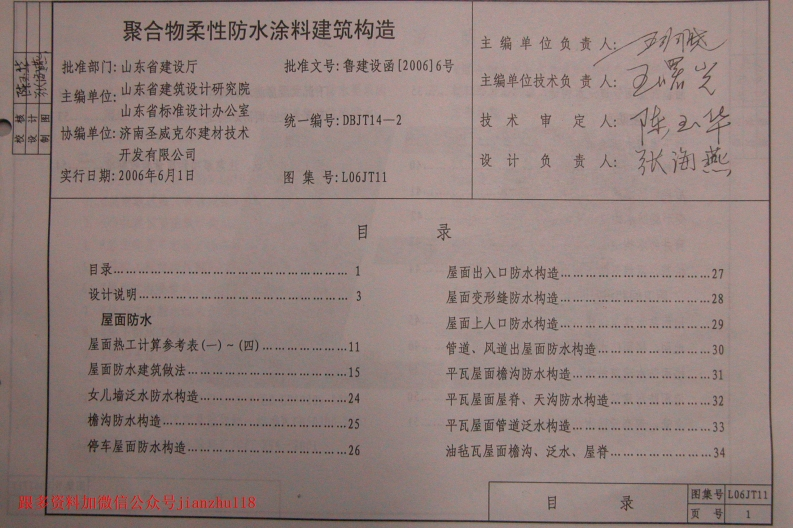 聚合物柔性防水涂料建筑构造
批准部门:山东省建设厅
批准文号:鲁建设函[2006]6号
主编单位:山东省建筑设计研究院
山东省标准设计办公室
统一编号:DBJT14—2
协编单位:济南圣威克尔建材技术
开发有限公司
实行日期:2006年6月1日
图 集 号:L06JT11
主编单位负责人:
主编单位技术负责人:王曙光
技 术 审 定 人:陈玉华
设 计 负 责 人:张海燕
校 核
设 计
制 图
目 录
目录………………………………………… 1
设计说明…………………………………… 3
屋面防水
屋面热工计算参考表(一)~(四)……………11
屋面防水建筑做法…………………………15
女儿墙泛水防水构造………………………24
檐沟防水构造………………………………25
停车屋面防水构造…………………………26
屋面出入口防水构造………………………27
屋面变形缝防水构造………………………28
屋面上人口防水构造………………………29
管道、风道出屋面防水构造………………30
平瓦屋面檐沟防水构造……………………31
平瓦屋面屋脊、天沟防水构造……………32
平瓦屋面管道泛水构造……………………33
油毡瓦屋面檐沟、泛水、屋脊……………34
目 录
图集号 L06JT11
页 号 1
跟多资料加微信公众号jianzhu118